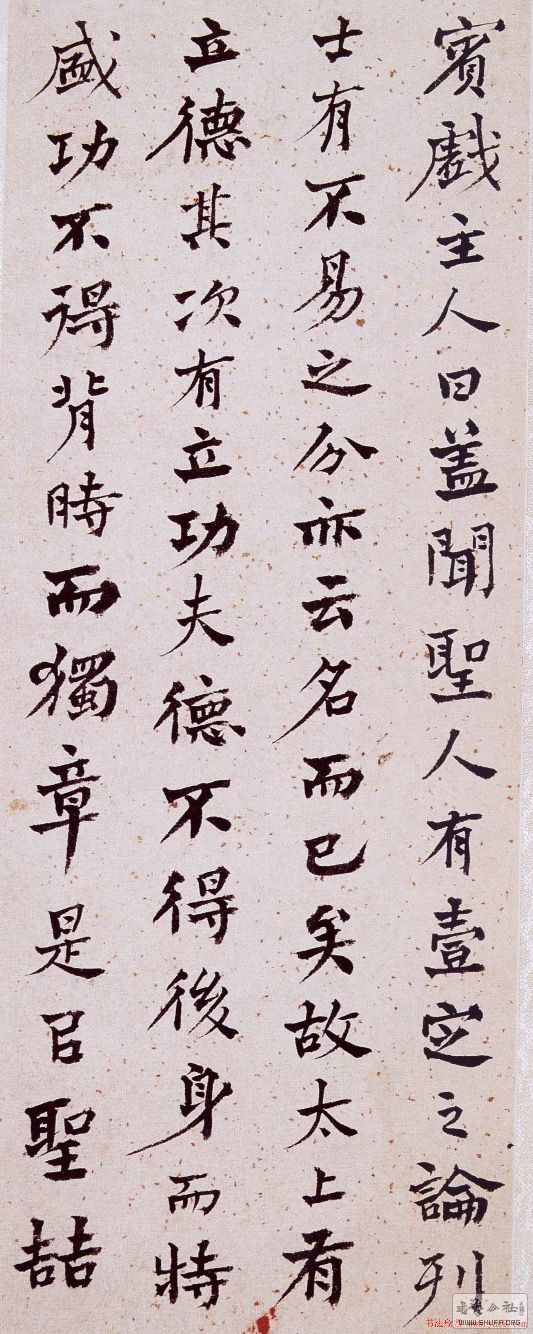 賓戲主人曰盖聞聖人有壹定之論列
士有不易之分亦云名而已矣故太上有
立德其次有立功夫德不得後身而特
盛功不得背時而獨章是㠯聖喆
WWW.SHUFA.ORG